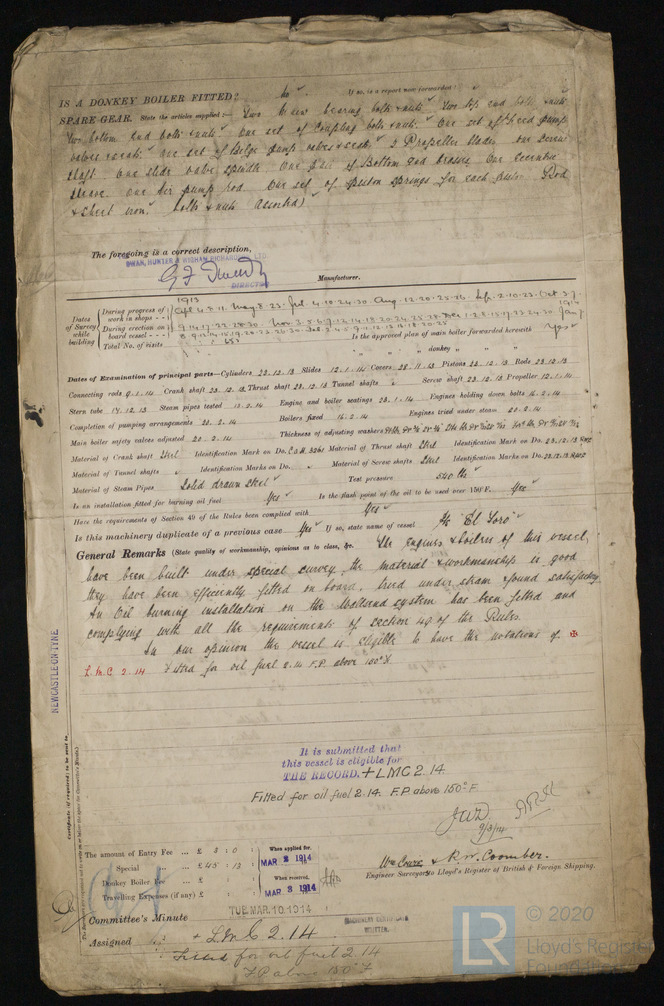 IS A DONKEY BOILER FITTED? no If so, is a report now forwarded?
SPARE GEAR. State the articles supplied:— Two main bearing bolts & nuts. Two top end bolts & nuts
Two bottom end bolts & nuts. One set of coupling bolts & nuts. One set of feed pump
valves & seats. One set of Bilge pump valves & seats. 2 Propeller blades. One screw
shaft. One slide valve spindle. One pair of Bottom end brasses. One eccentric
sheave. One air pump rod. One set of piston springs for each piston. Rod
& sheet iron. bolts & nuts assorted
The foregoing is a correct description,
SWAN, HUNTER & WIGHAM RICHARDSON LTD
DIRECTOR
Manufacturer.
1913
Dates of Survey while building
During progress of work in shops - - Apl. 4. 8. 11. May. 8. 23. Jul. 4. 18. 24. 30 Aug. 12. 20. 25. 26. Sep. 2. 10. 23. Oct. 3. 7.
During erection on board vessel - - - 9. 14. 17. 22. 28. 30. Nov. 3. 5. 6. 7. 12. 14. 18. 20. 24. 25. 28. Dec. 1. 2. 8. 15. 17. 23. 24. 30. Jan. 7.
Total No. of visits Is the approved plan of main boiler forwarded herewith Yes
" " " donkey " " "
Dates of Examination of principal parts—Cylinders 23.12.13 Slides 12.1.14 Covers 28.11.13 Pistons 23.12.13 Rods 23.12.13
Connecting rods 9.1.14 Crank shaft 23.12.13 Thrust shaft 23.12.13 Tunnel shafts Screw shaft 23.12.13 Propeller 12.1.14
Stern tube 17.12.13 Steam pipes tested 13.2.14 Engine and boiler seatings 28.1.14 Engines holding down bolts 16.2.14
Completion of pumping arrangements 20.2.14 Boilers fixed 16.2.14 Engines tried under steam 20.2.14
Main boiler safety valves adjusted 20.2.14 Thickness of adjusting washers
Material of Crank shaft Steel Identification Mark on Do. Material of Thrust shaft Steel Identification Mark on Do. 23.12.13
Material of Tunnel shafts Identification Marks on Do. Material of Screw shafts Steel Identification Marks on Do. 23.12.13
Material of Steam Pipes Solid drawn steel Test pressure 540 lbs
Is an installation fitted for burning oil fuel Yes Is the flash point of the oil to be used over 150°F. Yes
Have the requirements of Section 49 of the Rules been complied with Yes
Is this machinery duplicate of a previous case Yes If so, state name of vessel "El Toro"
General Remarks (State quality of workmanship, opinions as to class, &c. The Engines & boilers of this vessel
have been built under special survey, the material & workmanship is good
they have been efficiently fitted on board, tried under steam & found satisfactory
An Oil burning installation on the Wallsend system has been fitted and
complying with all the requirements of section 49 of the Rules.
In our opinion the vessel is eligible to have the notations of ✠
L.M.C 2.14 & fitted for oil fuel 2.14 F.P. above 150°F
NEWCASTLE-ON-TYNE
It is submitted that
this vessel is eligible for
THE RECORD. + LMC 2.14.
Fitted for oil fuel 2.14. F.P. above 150°F.
JWD
9/3/14
The amount of Entry Fee ... £ 3 : 0 When applied for.
Special ... £ 45 : 12 MAR 2 1914
Donkey Boiler Fee ... £ When received.
Travelling Expenses (if any) £ MAR 3 1914
& R. W. Coomber.
Engineer Surveyors to Lloyd's Register of British & Foreign Shipping.
Committee's Minute TUE. MAR. 10. 1914
MACHINERY CERTIFICATE
WRITTEN.
Assigned + L.M.C 2.14
Fitted for oil fuel 2.14
F.P. above 150°F
LR
© 2020
Lloyd's Register
Foundation